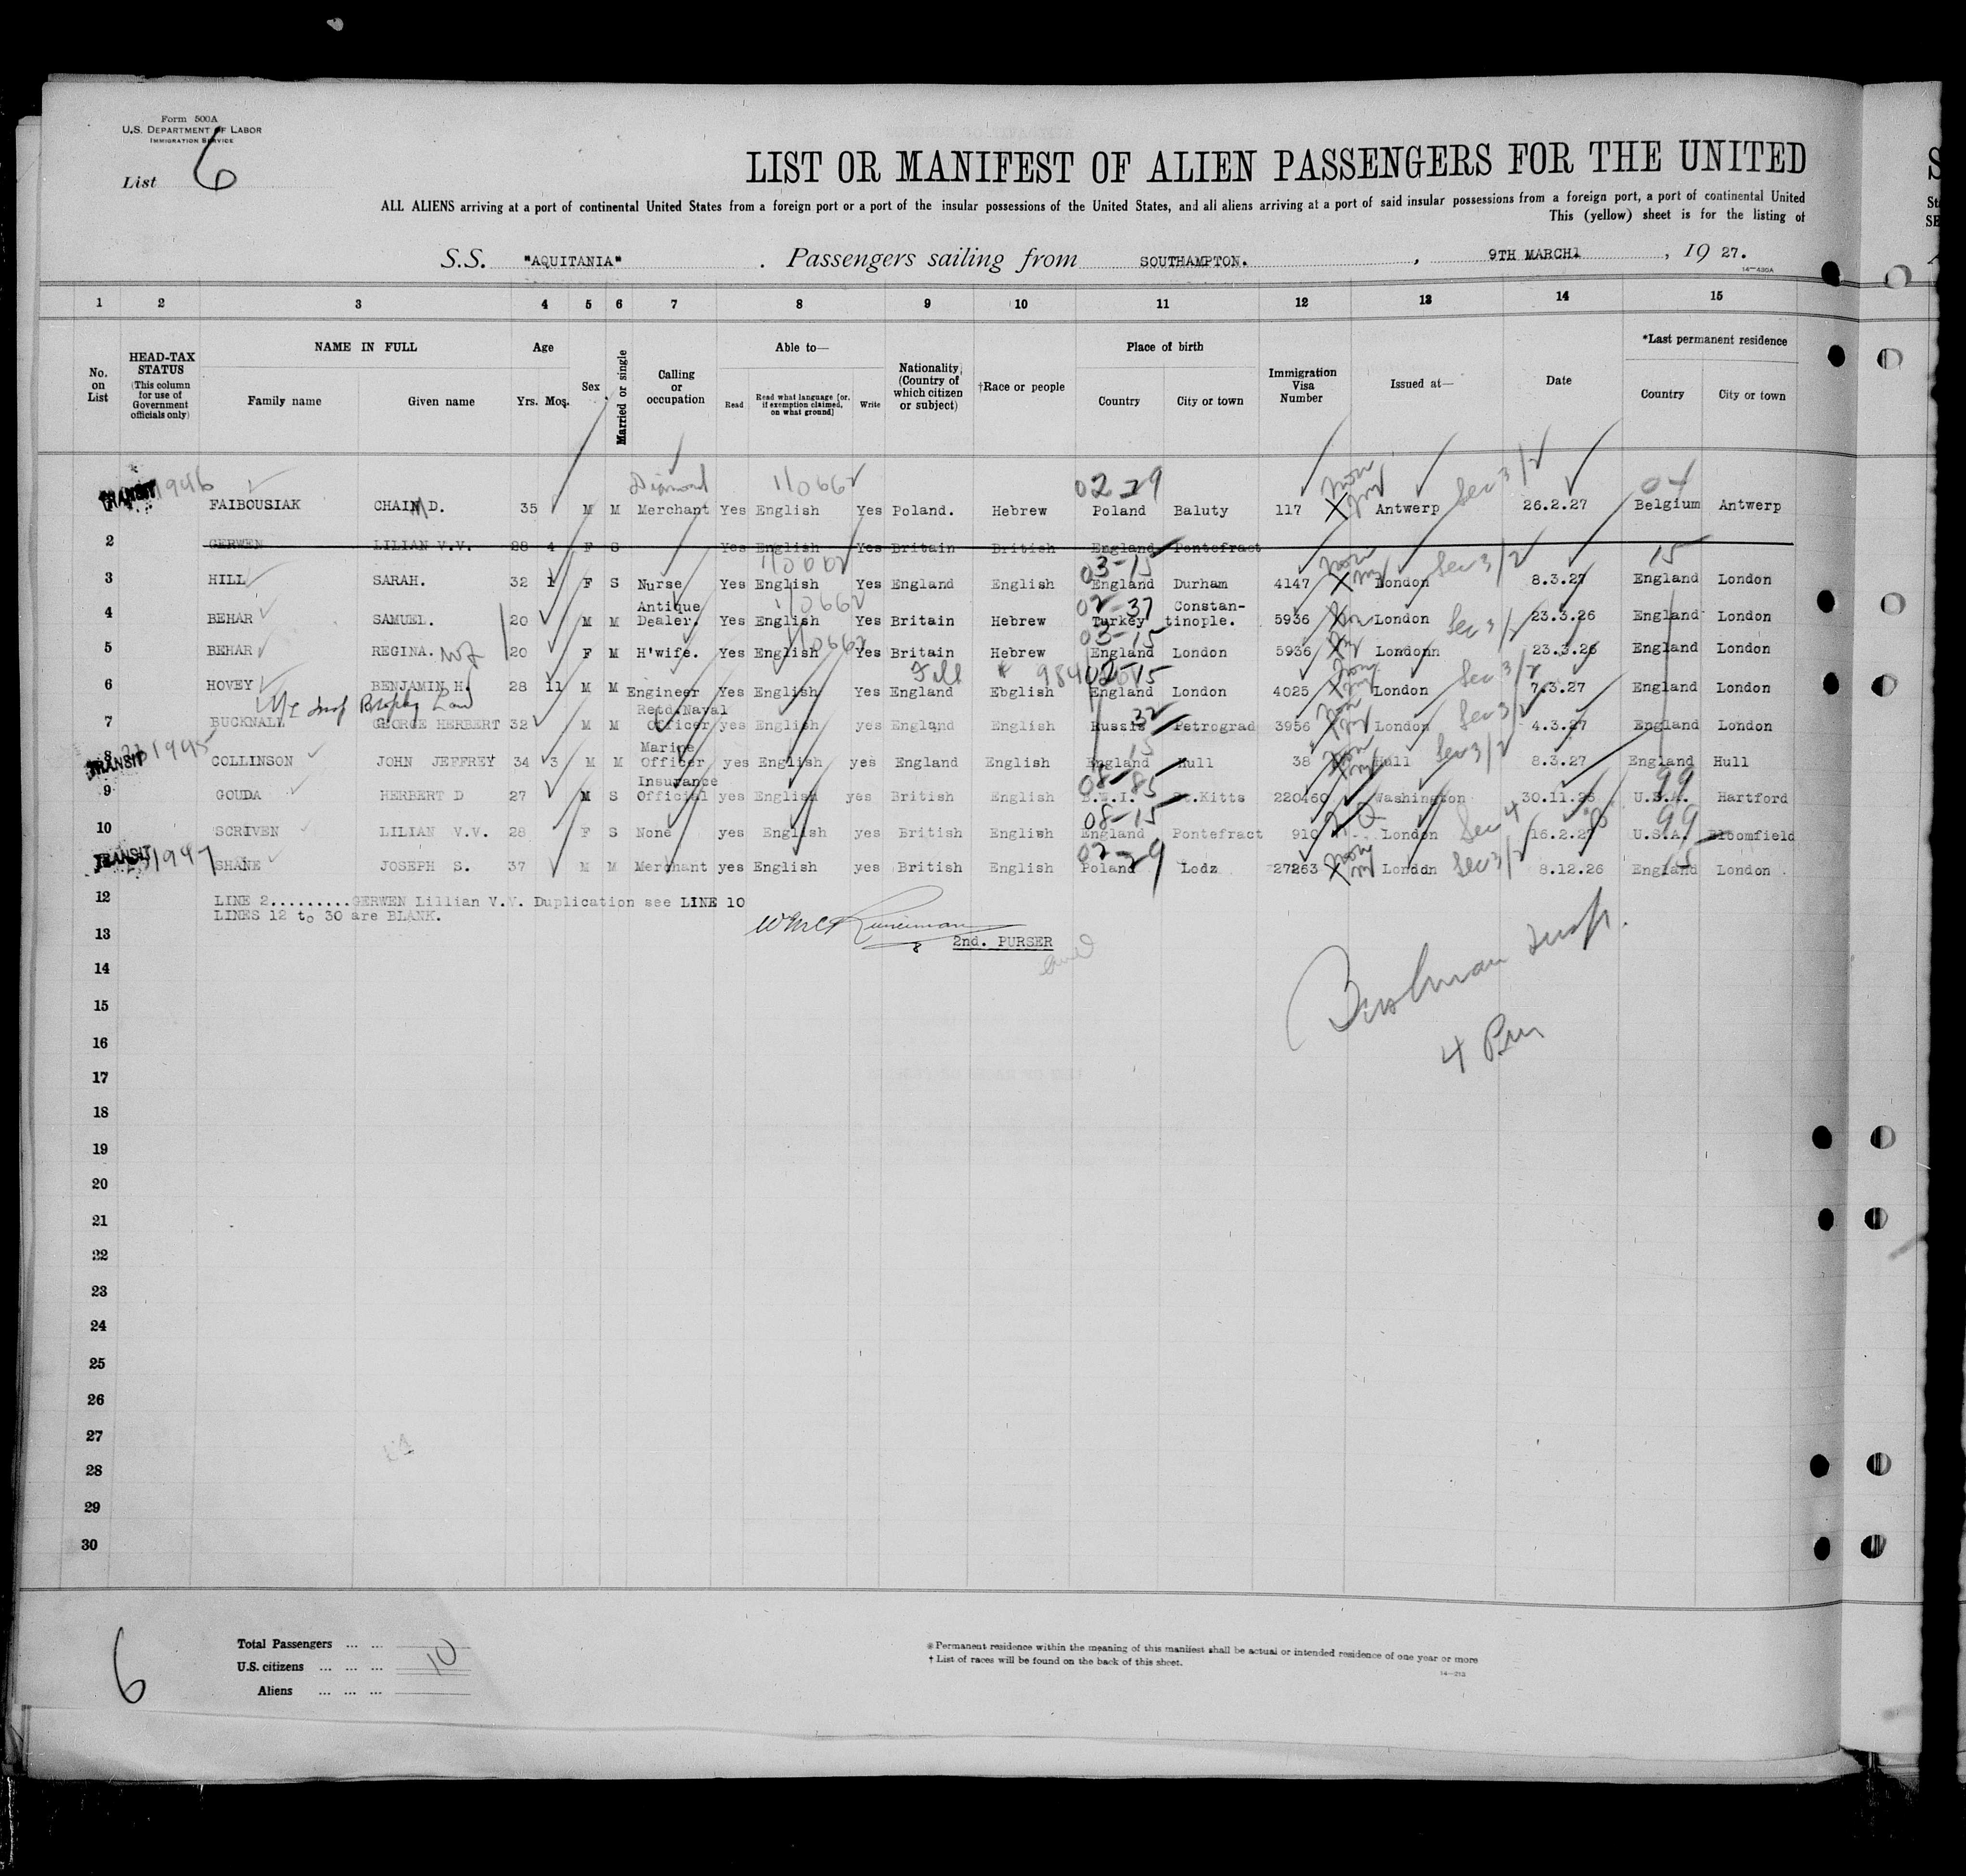 Form 500A
U.S. DEPARTMENT OF LABOR
IMMIGRATION SERVICE
List 6
LIST OR MANIFEST OF ALIEN PASSENGERS FOR THE UNITED
ALL ALIENS arriving at a port of continental United States from a foreign port or a port of the insular possessions of the United States, and all aliens arriving at a port of said insular possessions from a foreign port, a port of continental United
This (yellow) sheet is for the listing of
S.S. "AQUITANIA" . Passengers sailing from SOUTHAMPTON. , 9TH MARCH , 19 27.
1 2 3 4 5 6 7 8 9 10 11 12 13 14 15
No. on List
HEAD-TAX STATUS (This column for use of Government officials only)
NAME IN FULL Family name Given name
Age Yrs. Mos.
Sex
Married or single
Calling or occupation
Able to— Read Read what language [or, if exemption claimed, on what ground] Write
Nationality (Country of which citizen or subject)
†Race or people
Place of birth Country City or town
Immigration Visa Number
Issued at—
Date
*Last permanent residence Country City or town
Diamond 110662 02-29 Sec 3/2 04
TRANSIT 1946 FAIBOUSIAK CHAIM D. 35 M M Merchant Yes English Yes Poland. Hebrew Poland Baluty 117 Antwerp 26.2.27 Belgium Antwerp
2 GERWEN LILIAN V.V. 28 4 F S Yes English Yes Britain British England Pontefract
110662 03-15 Sec 3/2 15
3 HILL SARAH. 32 1 F S Nurse Yes English Yes England English England Durham 4147 London 8.3.27 England London
4 BEHAR SAMUEL. 20 M M Antique Dealer. Yes English Yes Britain Hebrew Turkey Constan-tinople. 5936 London Sec 3/2 23.3.26 England London
110662 02-37
5 BEHAR REGINA. wf 20 F M H'wife. Yes English Yes Britain Hebrew England London 5936 Londonn 23.3.26 England London
110662 03-15
6 HOVEY BENJAMIN H. 28 11 M M Engineer Yes English Yes England Ebglish England London 4025 London Sec 3/2 7.3.27 England London
7 BUCKNALL GEORGE HERBERT 32 M M Retd.Naval Officer yes English yes England English Russia Petrograd 3956 London Sec 3/2 4.3.27 England London
8 TRANSIT 1945 COLLINSON JOHN JEFFREY 34 3 M M Marine Officer yes English yes England English England Hull 38 Hull Sec 3/2 8.3.27 England Hull
9 GOUDA HERBERT D 27 M S Insurance Official yes English yes British English B.W.I. St.Kitts 220460 Washington 30.11.26 U.S.A. Hartford
08-85 99
10 SCRIVEN LILIAN V.V. 28 F S None yes English yes British English England Pontefract 910 London Sec 4 16.2.27 U.S.A. Bloomfield
08-15 99
TRANSIT 1947 SHANE JOSEPH S. 37 M M Merchant yes English yes British English Poland Lodz 27263 London Sec 3/2 8.12.26 England London
02-29 15
12 LINE 2.........GERWEN Lillian V.V. Duplication see LINE 10
LINES 12 to 30 are BLANK.
13 2nd. PURSER
14
15
16 4 Pm
17
18
19
20
21
22
23
24
25
26
27
28
29
30
6
Total Passengers ... ... 10
U.S. citizens ... ... ...
Aliens ... ... ...
* Permanent residence within the meaning of this manifest shall be actual or intended residence of one year or more
† List of races will be found on the back of this sheet.